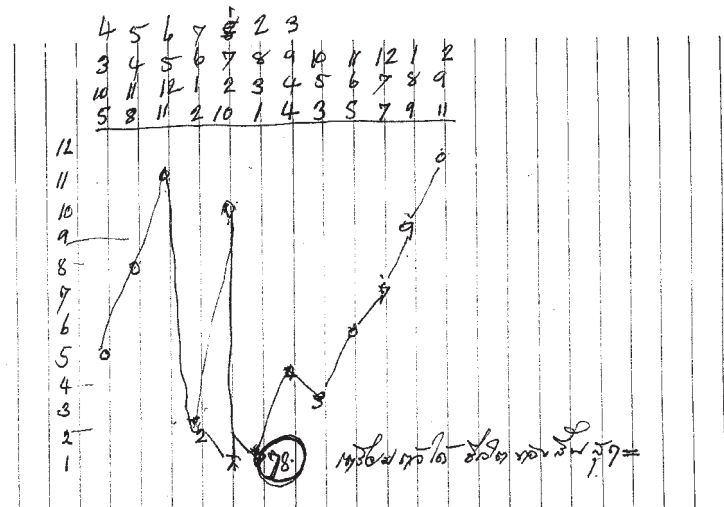 4 5 6 7 8 2 3
3 4 5 6 7 8 9 10 11 12 1 2
10 11 12 1 2 3 4 5 6 7 8 9
5 8 11 2 10 1 4 3 5 7 9 11
12
11
10
9
8
7
6
5
4
3
2
1
2
78
เตรียมตัวได้ ชีวิต